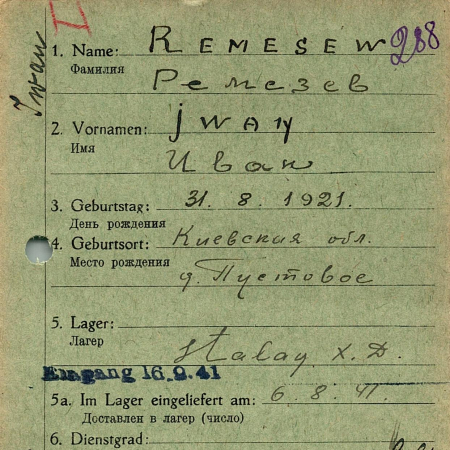 Iwan
I
1. Name: REMESEW 288
Фамилия Ремезев
2. Vornamen: jWAN
Имя Иван
3. Geburtstag: 31. 8. 1921.
День рождения
4. Geburtsort: Киевския обл.
Место рождения д. Пустовое
5. Lager:
Лагер Stalag X. D.
Eingang 16.9.41
5a. Im Lager eingeliefert am: 6. 8. 41.
Доставлен в лагер (число)
6. Dienstgrad: